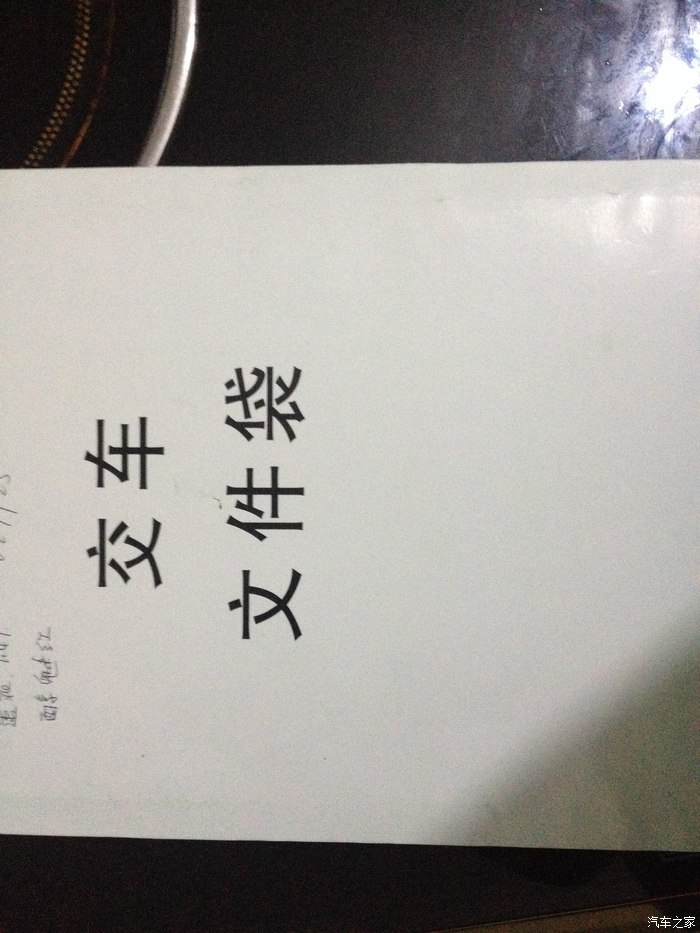 醇魅红
交车
文件袋
汽车之家